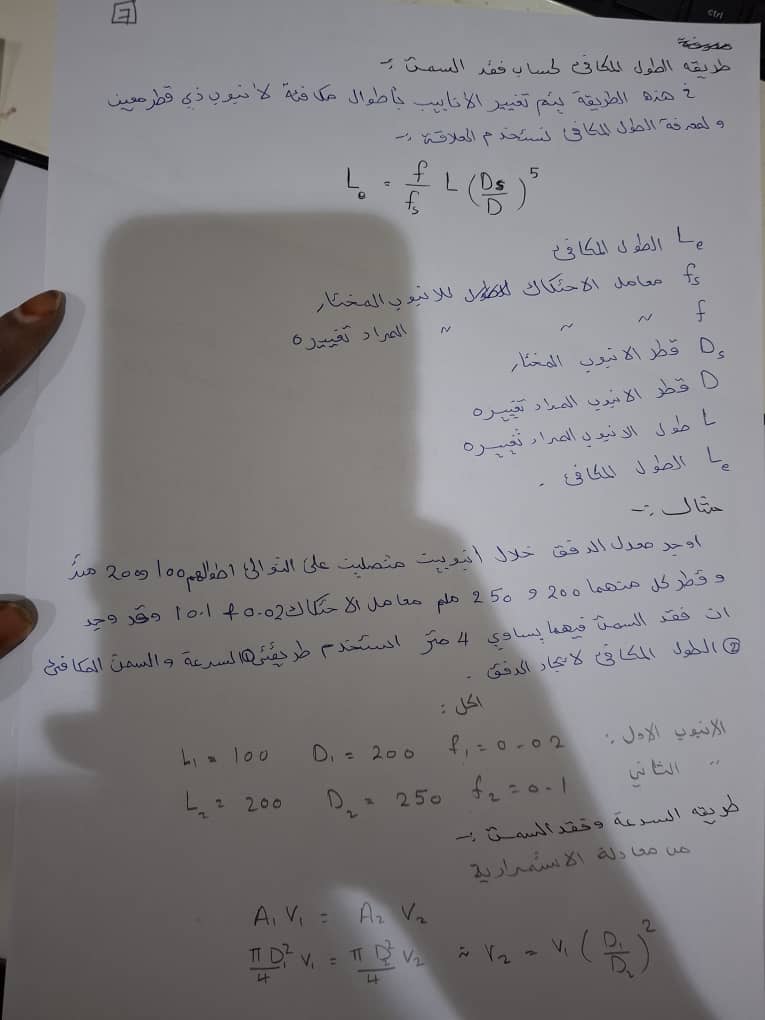 7
طريقه الطول المكافئ لحساب فقد السمت :-
في هذه الطريقة يتم تغيير الانابيب بأطوال مكافئة لانبوب ذي قطر معين
و لمعرفة الطول المكافئ نستخدم العلاقة :-
Le = f/fs L (Ds/D)^5
Le الطول المكافئ
fs معامل الاحتكاك للانبوب المختار
f " " " المراد تغييره
Ds قطر الانبوب المختار
D قطر الانبوب المراد تغييره
L طول الانبوب المراد تغييره
Le الطول المكافئ .
مثال :-
اوجد معدل الدفق خلال انبوبين متصلين على التوالي اطوالهم 100 و 200 متر
و قطر كل منهما 200 و 250 ملم معامل الاحتكاك 0.02 و 0.1 وقد وجد
ان فقد السمت فيهما يساوي 4 متر استخدم طريقتي ① السرعة والسمت المكافئ
② الطول المكافئ لايجاد الدفق .
الحل :
الانبوب الاول : L1 = 100 D1 = 200 f1 = 0.02
" الثاني L2 = 200 D2 = 250 f2 = 0.1
طريقه السرعة وفقد السمت :-
من معادلة الاستمرارية
A1 V1 = A2 V2
πD1²/4 V1 = πD2²/4 V2 ≈ V2 = V1 (D1/D2)²